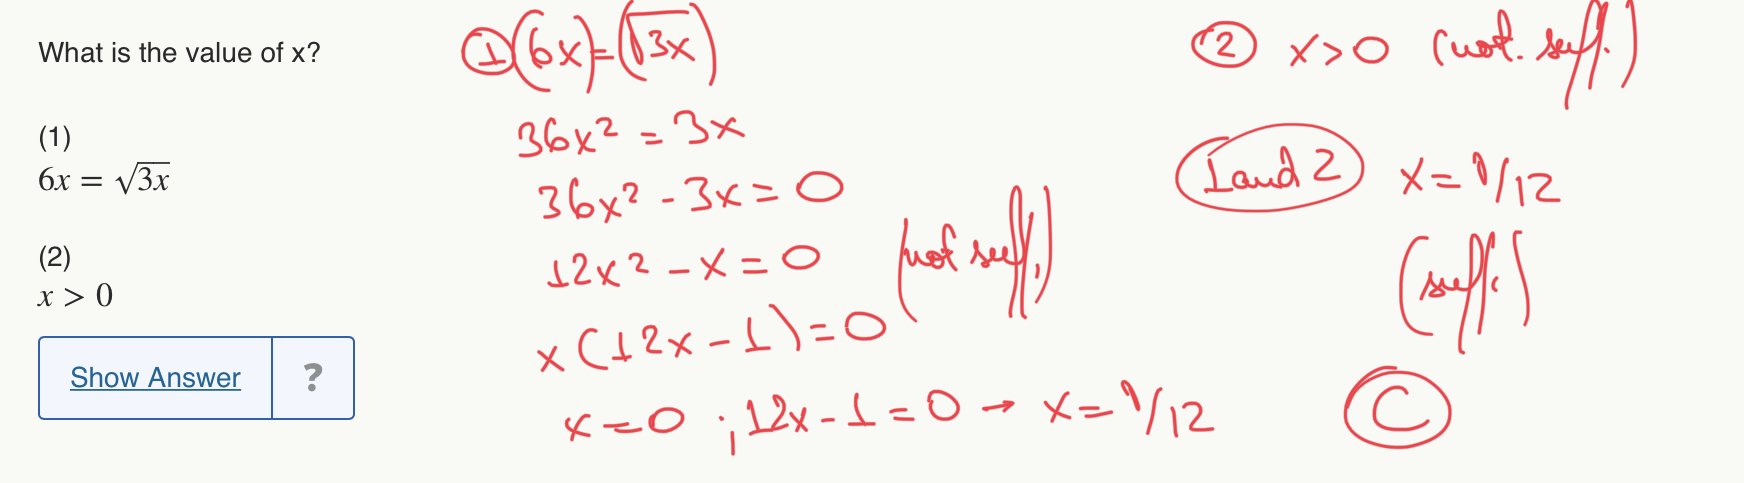 What is the value of x?
(1)
6x = √3x
(2)
x > 0
Show Answer
?
① (6x) = (√3x)
36x² = 3x
36x² - 3x = 0
12x² - x = 0
(not suff.)
x(12x - 1) = 0
x = 0 ; 12x - 1 = 0 → x = 1/12
② x > 0 (not. suff.)
1 and 2 x = 1/12
(suff.)
C